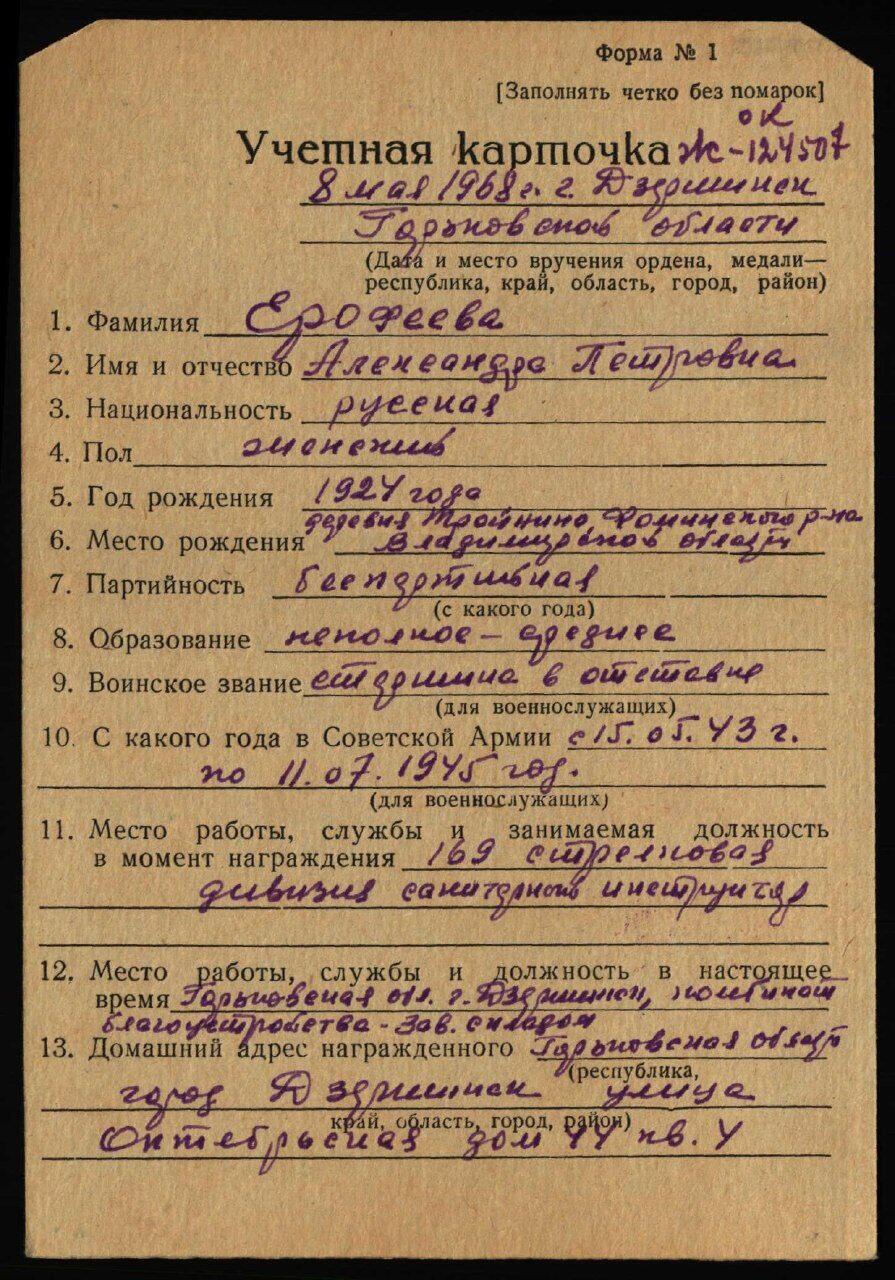 Форма № 1
[Заполнять четко без помарок]
ок
Учетная карточка Ж-124507
8 мая 1968 г. г. Дзержинск
Горьковской области
(Дата и место вручения ордена, медали—
республика, край, область, город, район)
1. Фамилия Ерофеева
2. Имя и отчество Александра Петровна
3. Национальность русская
4. Пол женский
5. Год рождения 1924 года
деревня Тройнино, Фоминского р-на
6. Место рождения Владимирской области
7. Партийность беспартийная
(с какого года)
8. Образование неполное – среднее
9. Воинское звание старшина в отставке
(для военнослужащих)
10. С какого года в Советской Армии с 15.05.43 г.
по 11.07.1945 год.
(для военнослужащих)
11. Место работы, службы и занимаемая должность
в момент награждения 169 стрелковая
дивизия санитарный инструктор
12. Место работы, службы и должность в настоящее
время Горьковская обл. г. Дзержинск, комбинат
благоустройства - зав. складом
13. Домашний адрес награжденного Горьковская область
(республика,
город Дзержинск улица
край, область, город, район)
Октябрьская дом 44 кв. 4